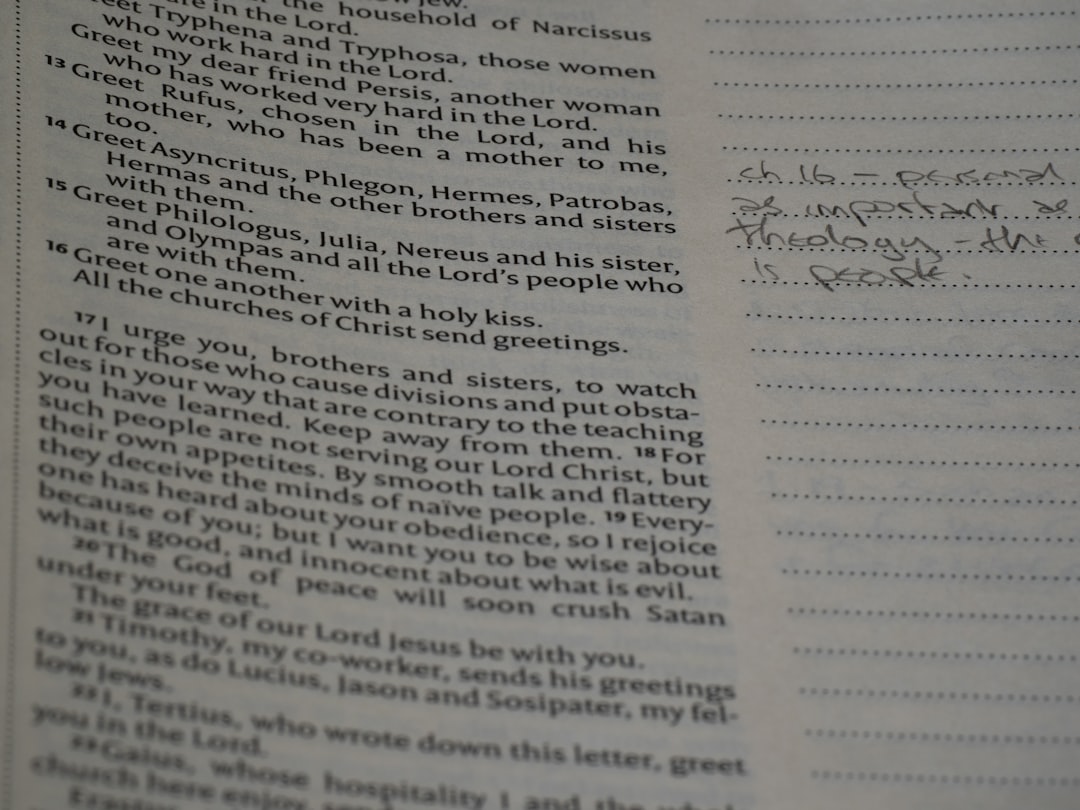 the household of Narcissus
in the Lord.
Tryphena and Tryphosa, those women
who work hard in the Lord.
Greet my dear friend Persis, another woman
who has worked very hard in the Lord.
13 Greet Rufus, chosen in the Lord, and his
mother, who has been a mother to me,
too.
14 Greet Asyncritus, Phlegon, Hermes, Patrobas,
Hermas and the other brothers and sisters
with them.
15 Greet Philologus, Julia, Nereus and his sister,
and Olympas and all the Lord's people who
are with them.
16 Greet one another with a holy kiss.
All the churches of Christ send greetings.
17 I urge you, brothers and sisters, to watch
out for those who cause divisions and put obsta-
cles in your way that are contrary to the teaching
you have learned. Keep away from them. 18 For
such people are not serving our Lord Christ, but
their own appetites. By smooth talk and flattery
they deceive the minds of naïve people. 19 Every-
one has heard about your obedience, so I rejoice
because of you; but I want you to be wise about
what is good, and innocent about what is evil.
20 The God of peace will soon crush Satan
under your feet.
The grace of our Lord Jesus be with you.
21 Timothy, my co-worker, sends his greetings
to you, as do Lucius, Jason and Sosipater, my fel-
low Jews.
22 I, Tertius, who wrote down this letter, greet
you in the Lord.
23 Gaius, whose hospitality I and the
church here enjoy,
ch 16 – personal
as important as
theology – the
is people.